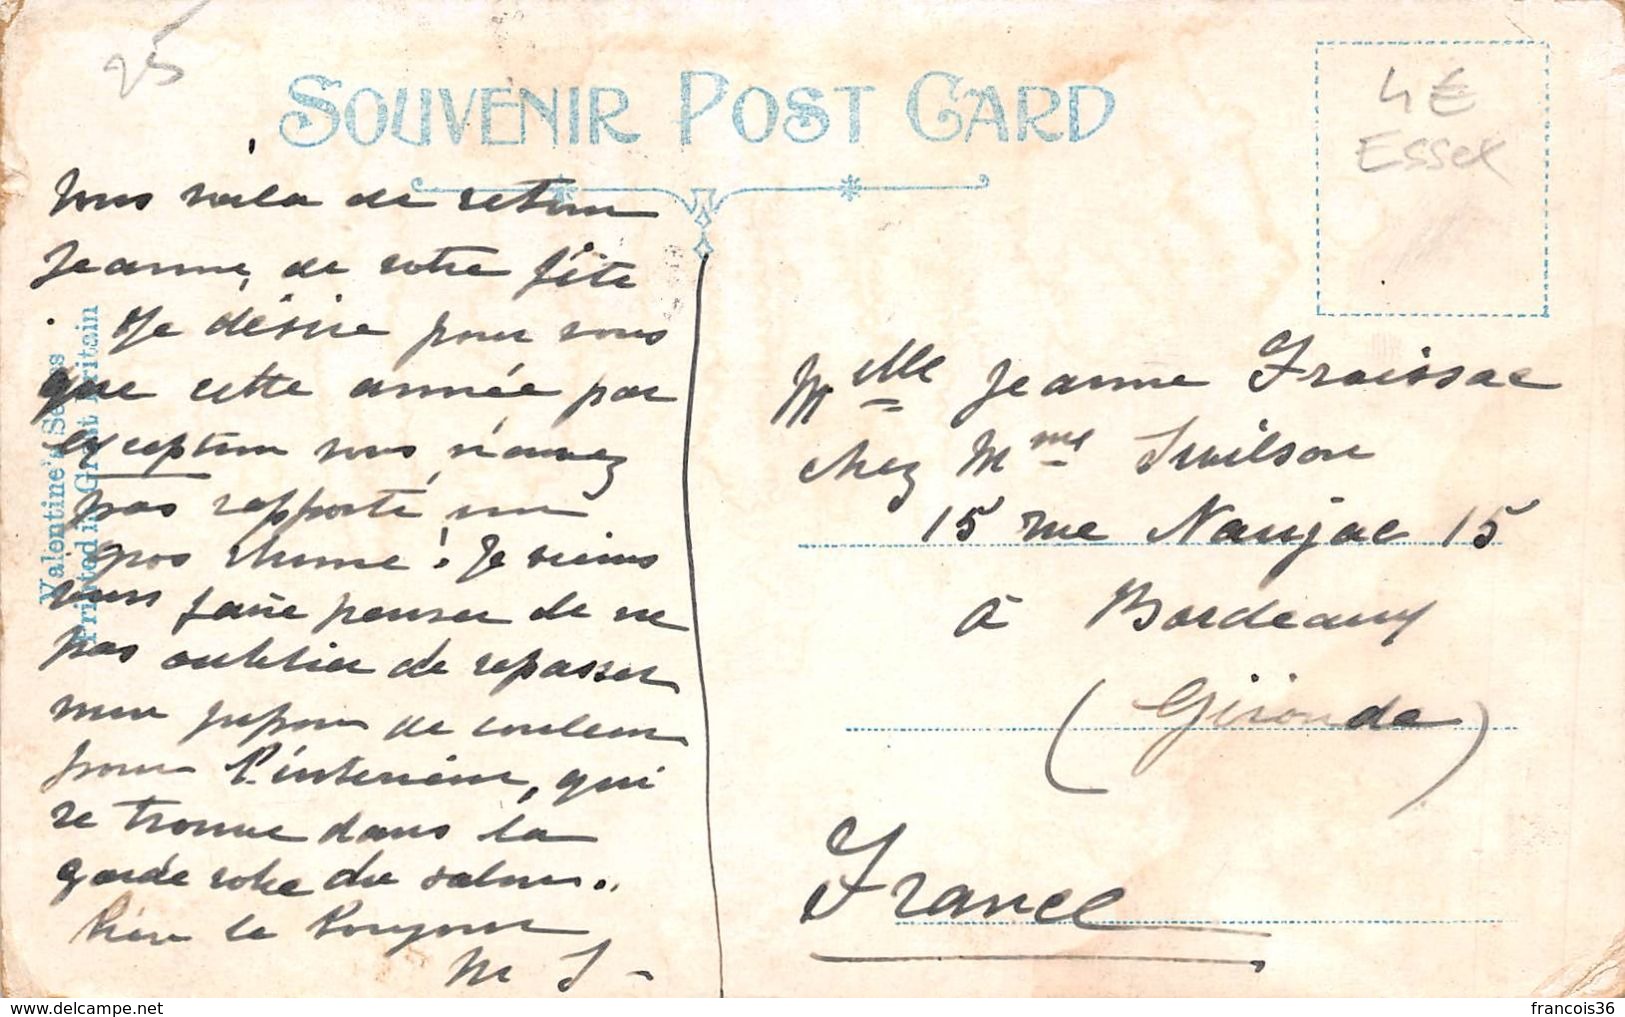 25
SOUVENIR POST CARD
4€
Essex
Vous voila de retour
Jeanne, de votre fête
Je désire pour vous
que cette année par
exception vous n'aurez
pas rapporté un
gros rhume! Je viens
vous faire penser de ne
pas oublier de repasser
mon jupon de couleur
pour l'interieur, qui
se trouve dans la
garde robe du salon.
bien le bonjour
M S
Valentine's Series
Printed in Great Britain
Melle Jeanne Fraissac
chez Mme Swilson
15 rue Naujac 15
à Bordeaux
(Gironde)
France
delcampe.net
francois36